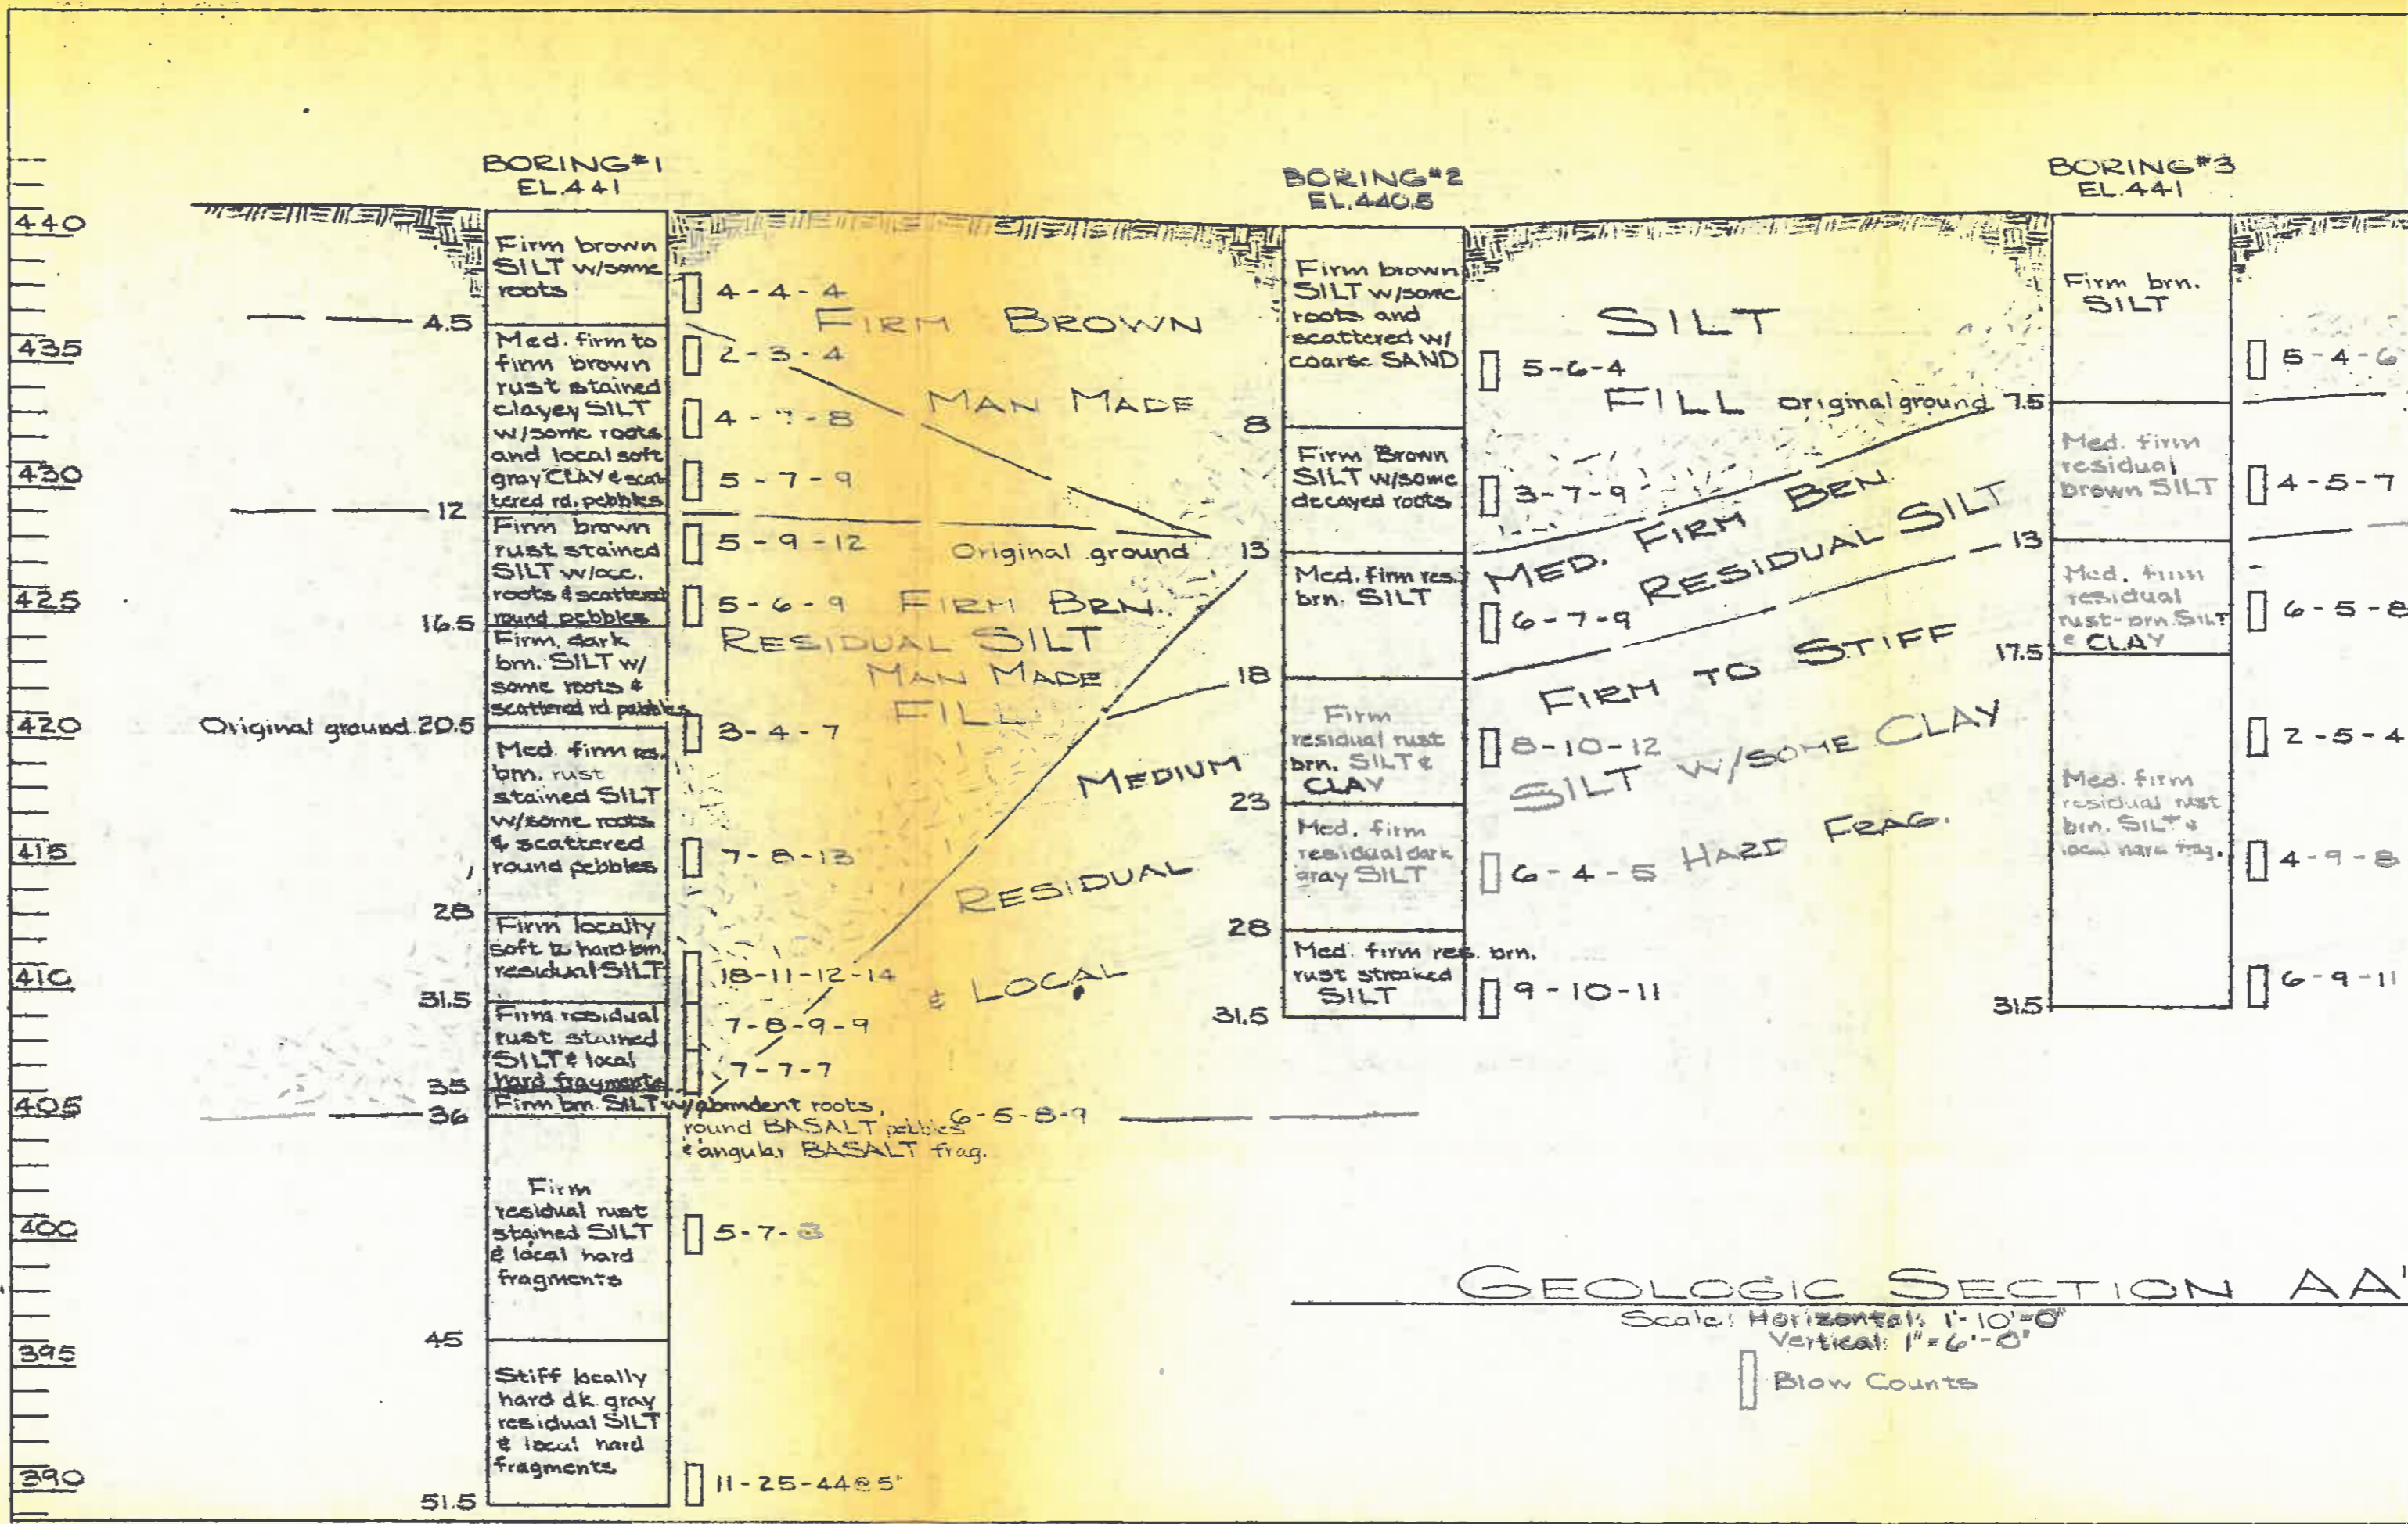 440
435
430
425
420
415
410
405
400
395
390
BORING #1
EL. 441
Firm brown
SILT w/some
roots
4.5
Med. firm to
firm brown
rust stained
clayey SILT
w/some roots
and local soft
gray CLAY & scat
tered rd. pebbles
12
Firm brown
rust stained
SILT w/occ.
roots & scattered
round pebbles
16.5
Firm dark
brn. SILT w/
some roots &
scattered rd pebbles
Original ground 20.5
Med. firm res.
brn. rust
stained SILT
w/some roots
& scattered
round pebbles
28
Firm locally
soft to hard brn.
residual SILT
31.5
Firm residual
rust stained
SILT & local
hard fragments
35
Firm brn. SILT w/abundent roots,
round BASALT pebbles
& angular BASALT frag.
36
Firm
residual rust
stained SILT
& local hard
fragments
45
Stiff locally
hard dk. gray
residual SILT
& local hard
fragments
51.5
4-4-4
2-3-4
4-7-8
5-7-9
5-9-12
5-6-9
3-4-7
7-8-13
18-11-12-14
7-8-9-9
7-7-7
6-5-8-9
5-7-8
11-25-44@5"
FIRM BROWN
MAN MADE
Original ground
FIRM BRN.
RESIDUAL SILT
MAN MADE
FILL
MEDIUM
RESIDUAL
& LOCAL
BORING #2
EL. 440.5
Firm brown
SILT w/some
roots and
scattered w/
coarse SAND
8
Firm Brown
SILT w/some
decayed roots
13
Med. firm res.
brn. SILT
18
Firm
residual rust
brn. SILT &
CLAY
23
Med. firm
residual dark
gray SILT
28
Med. firm res. brn.
rust streaked
SILT
31.5
5-6-4
3-7-9
6-7-9
8-10-12
6-4-5
9-10-11
SILT
FILL
Original ground
MED. FIRM BRN.
RESIDUAL SILT
FIRM TO STIFF
SILT W/SOME CLAY
HARD FRAG.
BORING #3
EL. 441
Firm brn.
SILT
7.5
Med. firm
residual
brown SILT
13
Med. firm
residual
rust-brn. SILT
& CLAY
17.5
Med. firm
residual rust
brn. SILT &
local hard frag.
31.5
5-4-6
4-5-7
6-5-8
2-5-4
4-9-8
6-9-11
GEOLOGIC SECTION AA'
Scale: Horizontal: 1"-10'-0"
Vertical: 1"=6'-0"
Blow Counts